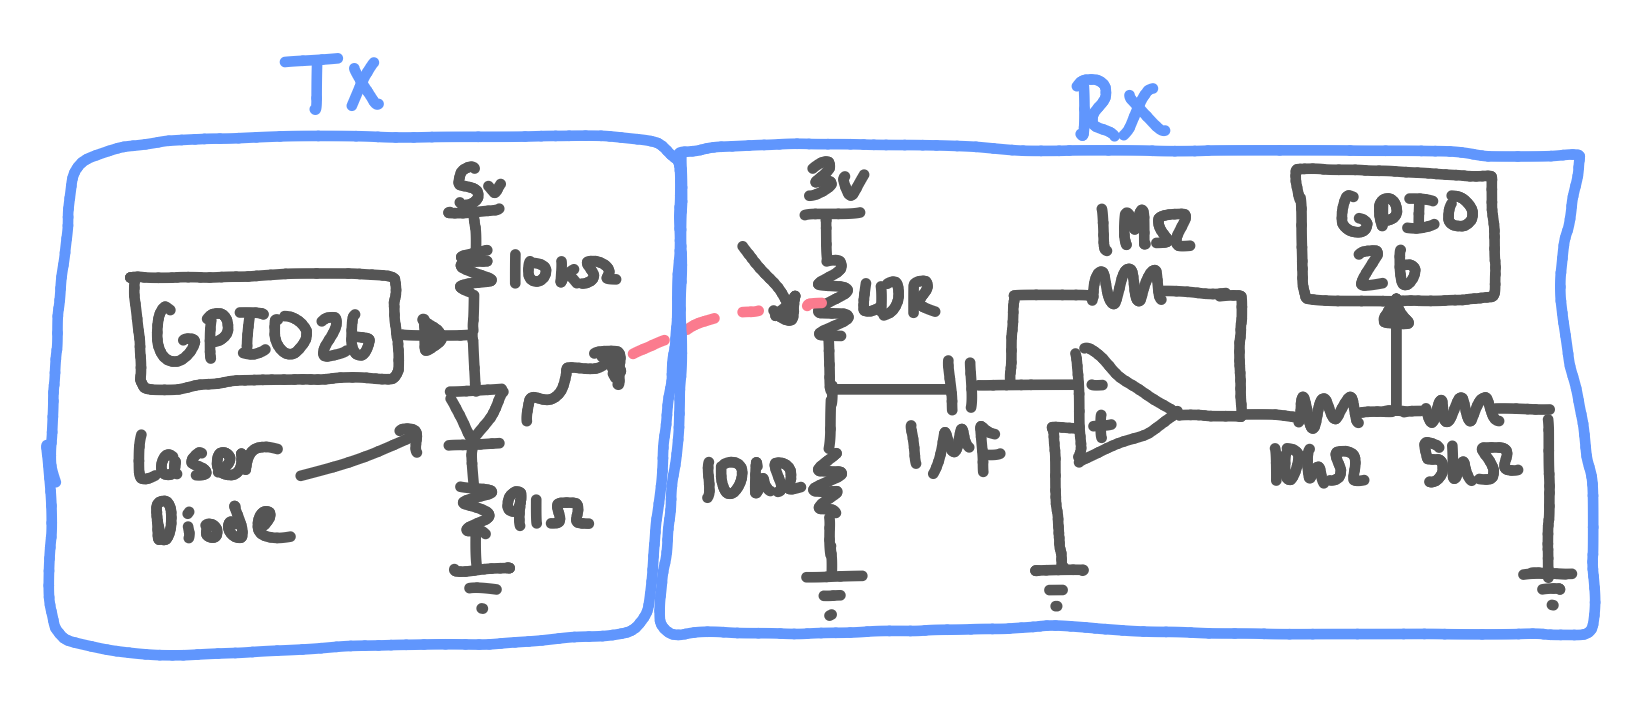 TX
RX
5v
10kΩ
GPIO26
Laser
Diode
91Ω
3v
LDR
10kΩ
1μF
1MΩ
-
+
GPIO
26
10kΩ
5kΩ